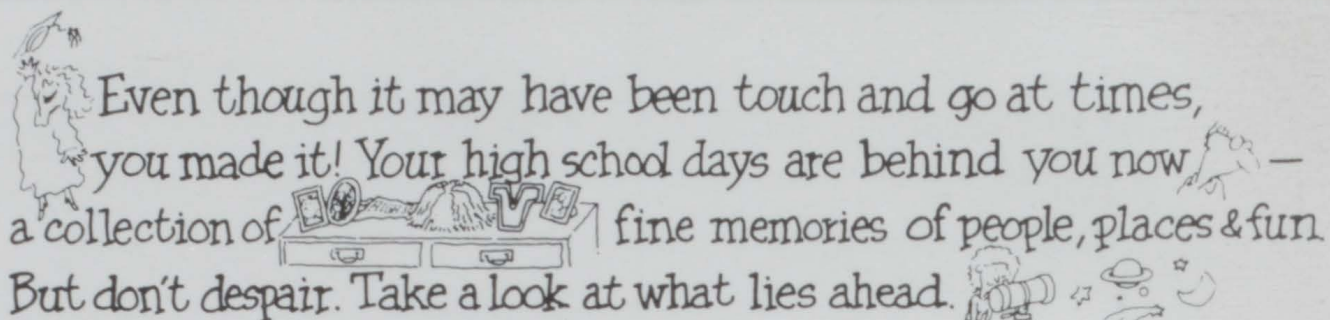 Even though it may have been touch and go at times,
you made it! Your high school days are behind you now —
a collection of fine memories of people, places & fun.
But don't despair. Take a look at what lies ahead.